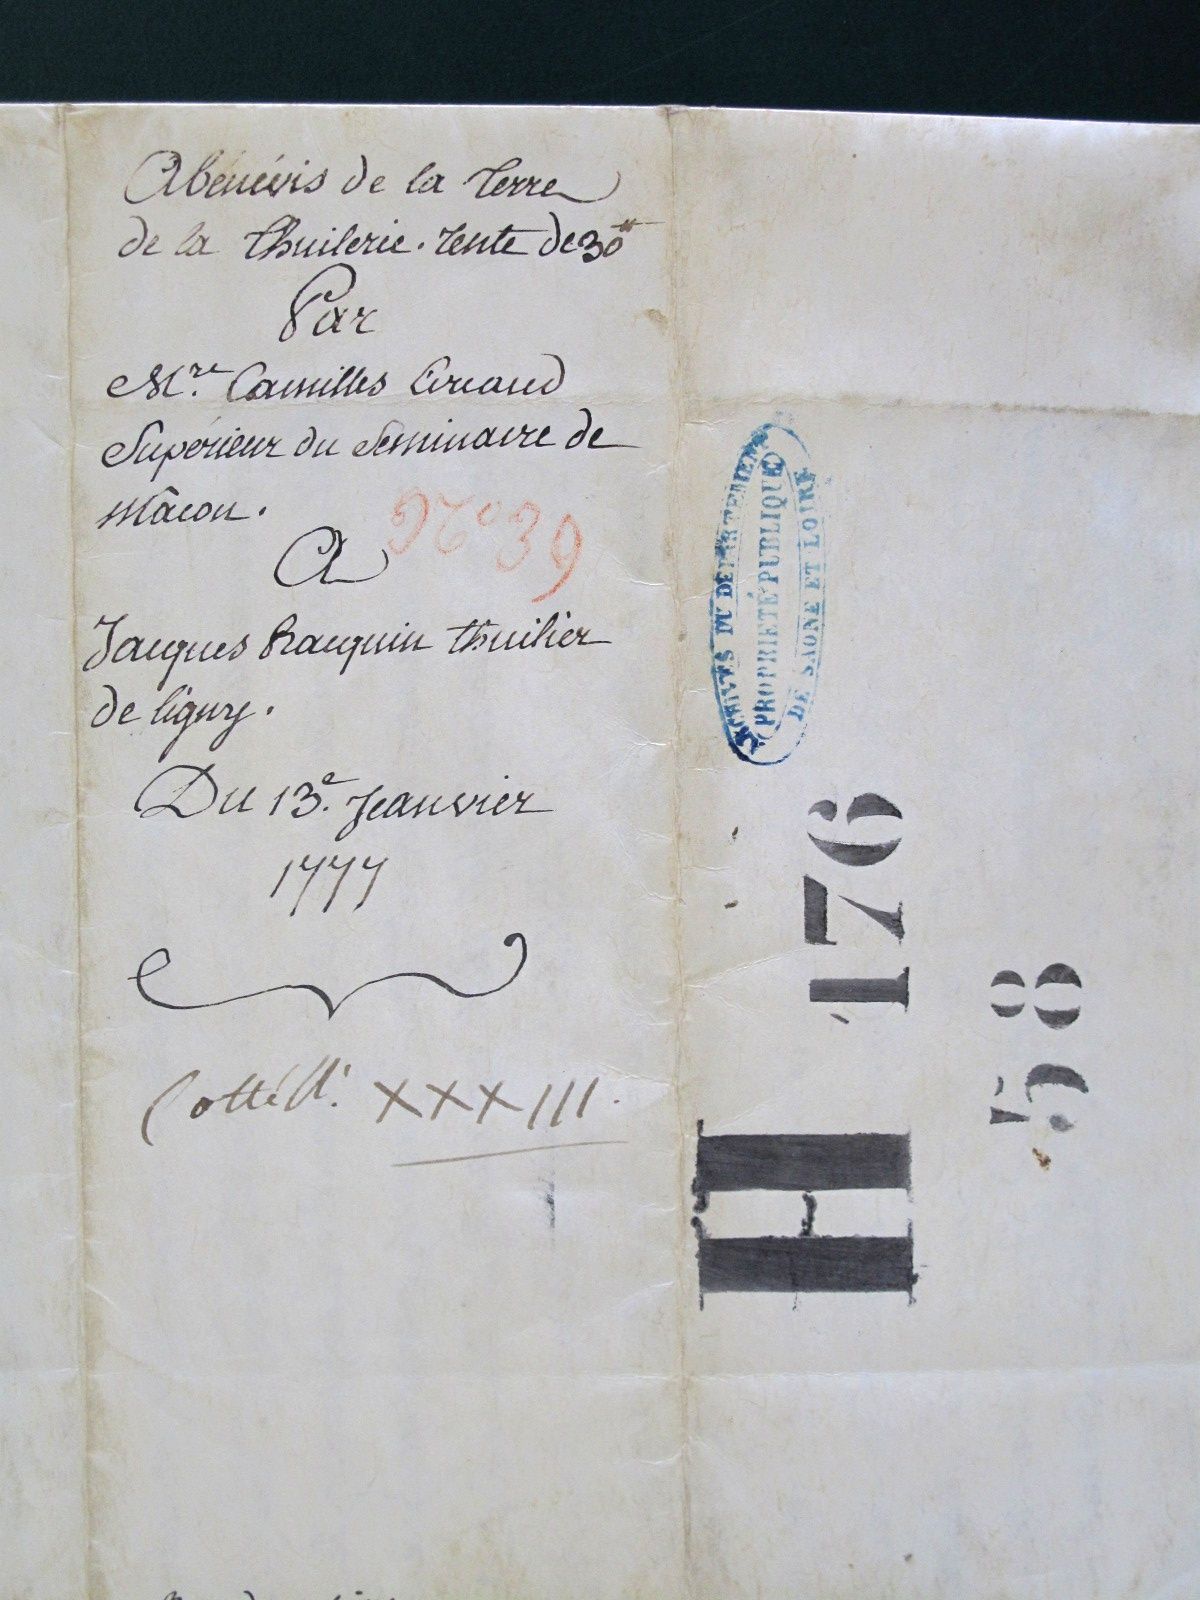 Abénévis de la terre
de la thuilerie. rente de 30ᵗᵗ
Par
Mʳᵉ Camilles
Supérieur du Seminaire de
Mâcon.
N° 39
A
Jacques Racquin thuilier
de ligny.
Du 13ᵉ. Jeanvier
1777
Cotté N° XXXIII.
ARCHIVES DU DEPARTEMENT
PROPRIÉTÉ PUBLIQUE
DE SAONE ET LOIRE
H 176
58